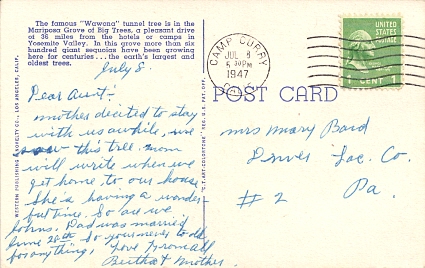 The famous "Wawona" tunnel tree is in the
Mariposa Grove of Big Trees, a pleasant drive
of 36 miles from the hotels or camps in
Yosemite Valley. In this grove more than six
hundred giant sequoias have been growing
here for centuries...the earth's largest and
oldest trees.
July 8-
Dear Aunt:-
mother decided to stay
with us awhile, we
saw this tree. mom
will write when we
get home, to our house
She is having a wonder-
ful time. So are we
Johns, Dad was married
June 28th So your never to old
for anything, Love from all
Bertha & Mother
WESTERN PUBLISHING & NOVELTY CO., LOS ANGELES, CALIF.
"C.T. ART-COLORTONE" REG. U.S. PAT. OFF.
CAMP CURRY
JUL 8
PM
1947
UNITED
STATES
POSTAGE
1 CENT 1
POST CARD
Mrs Mary Bard
Co.
#2 Pa.